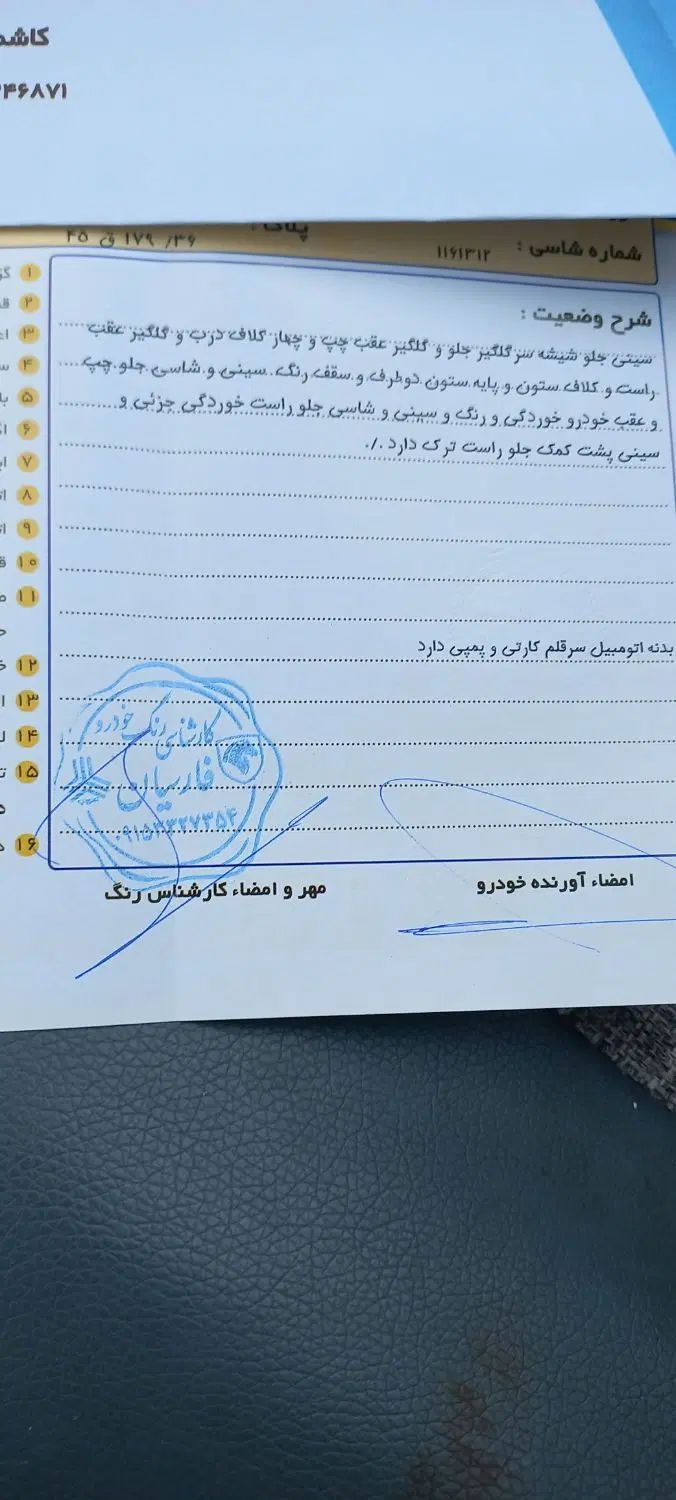 ۴۶۸۷۱
پلاک :
۳۶/ ۱۷۹ ق ۴۵
شماره شاسی : ۱۱۶۱۳۱۲
شرح وضعیت :
سینی جلو شیشه سر گلگیر جلو و گلگیر عقب چپ و چهار کلاف درب و گلگیر عقب
راست و کلاف ستون و پایه ستون دوطرف و سقف رنگ. سینی و شاسی جلو چپ
و عقب خودرو خوردگی و رنگ و سینی و شاسی جلو راست خوردگی جزئی و
سینی پشت کمک جلو راست ترک دارد ./.
بدنه اتومبیل سرقلم کارتی و پمپی دارد
۱
۲
۳
۴
۵
۶
۷
۸
۹
۱۰
۱۱
۱۲
۱۳
۱۴
۱۵
۱۶
کارشناسی رنگ خودرو
فارسیان
۰۹۱۵۳۳۲۷۳۵۴
امضاء آورنده خودرو
مهر و امضاء کارشناس رنگ